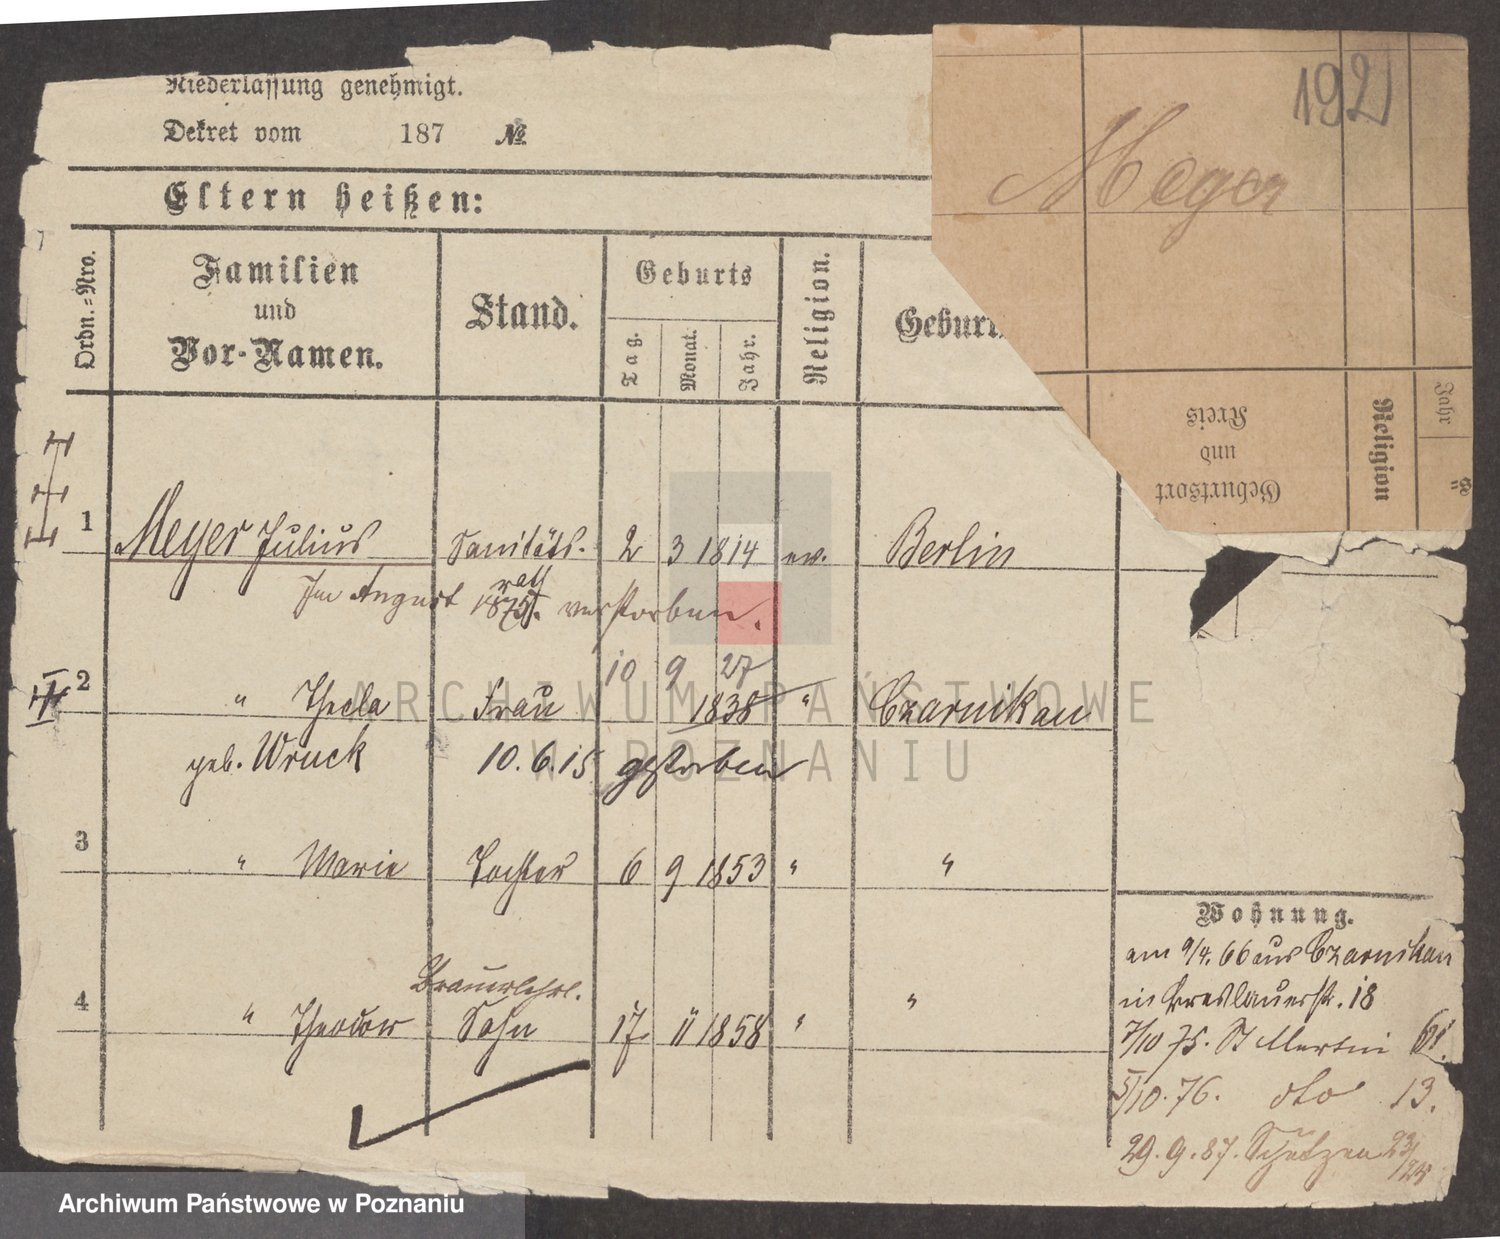 Niederlassung genehmigt.
Dekret vom 187 №
Eltern heißen:
Ordn.=Nro.
Familien
und
Vor-Namen.
Stand.
Geburts
Tag.
Monat.
Jahr.
Religion.
Geburt
192
Meyer
Geburtsort
und
Kreis
Religion
Jahr
1 Meyer Julius Sanitäts- 2 3 1814 ev. Berlin
rath
Im August 1875. verstorben.
10 9 27
2 " Thecla Frau 1838 " Czarnikau
geb. Wruck 10.6.15 gestorben
3 " Marie Tochter 6 9 1853 " "
Brauerlehrl.
4 " Theodor Sohn 17 11 1858 " "
Wohnung.
am 9/4. 66 aus Czarnikau
in Breslauerstr. 18
7/10 75. St Martin 61.
5/10. 76. dto 13.
29. 9. 87. Schützen 23/
ARCHIWUM PAŃSTWOWE
W POZNANIU
Archiwum Państwowe w Poznaniu